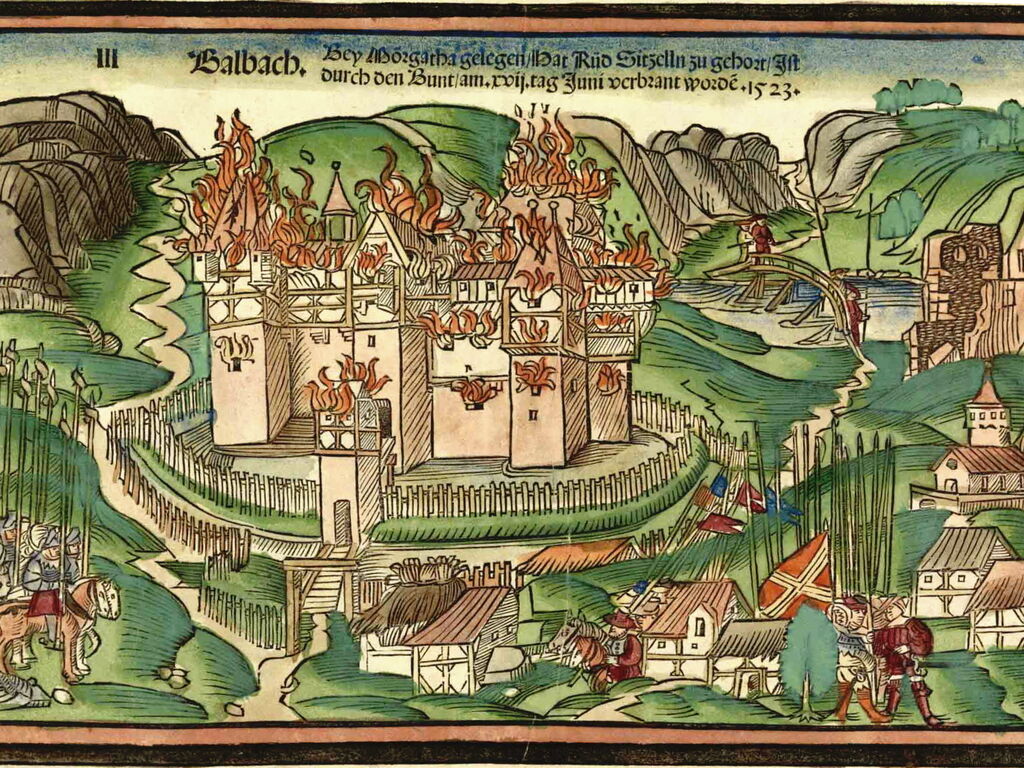 III Balbach. Bey Mörgatha gelegen/Hat Rüd Sützelln zu gehort/Ist
durch den Bunt/am.xvij.tag Juni verbrant wordē.1523.